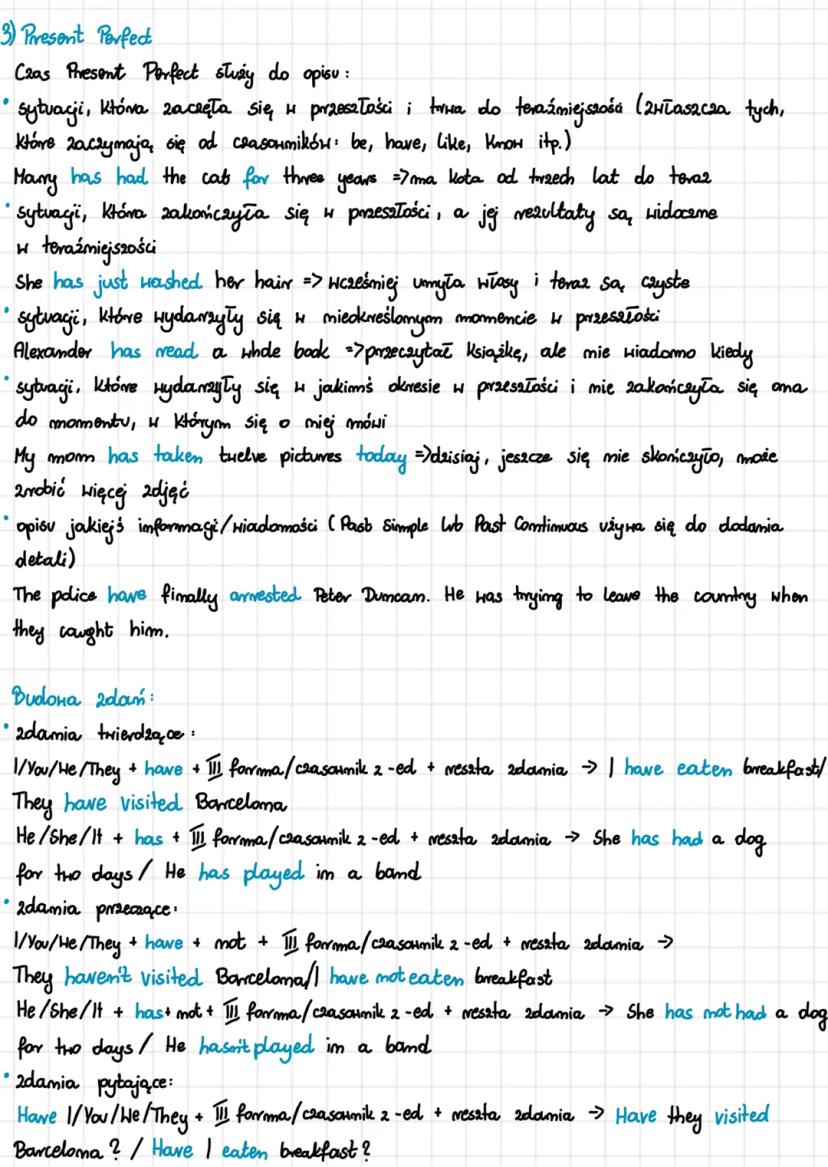 3) Present Perfect
Czas Present Perfect służy do opisu:
• sytuacji, która zaczęła się w przeszłości i trwa do teraźniejszości (zwłaszcza tych,
które zaczynają się od czasowników: be, have, like, know itp.)
Mary has had the cat for three years => ma kota od trzech lat do teraz
• sytuacji, która zakończyła się w przeszłości, a jej rezultaty są widoczne
w teraźniejszości
She has just washed her hair => wcześniej umyła włosy i teraz są czyste
• sytuacji, które wydarzyły się w nieokreślonym momencie w przeszłości
Alexander has read a whole book => przeczytał książkę, ale nie wiadomo kiedy
• sytuacji, które wydarzyły się w jakimś okresie w przeszłości i nie zakończyła się ona
do momentu, w którym się o niej mówi
My mom has taken twelve pictures today => dzisiaj, jeszcze się nie skończyło, może
zrobić więcej zdjęć
• opisu jakiejś informacji/wiadomości (Past Simple lub Past Continuous używa się do dodania
detali)
The police have finally arrested Peter Duncan. He was trying to leave the country when
they caught him.
Budowa zdań:
• zdania twierdzące:
I/You/We/They + have + III forma/czasownik z -ed + reszta zdania → I have eaten breakfast/
They have visited Barcelona
He/She/It + has + III forma/czasownik z -ed + reszta zdania → She has had a dog
for two days / He has played in a band
• zdania przeczące:
I/You/We/They + have + not + III forma/czasownik z -ed + reszta zdania →
They haven't visited Barcelona/I have not eaten breakfast
He/She/It + has + not + III forma/czasownik z -ed + reszta zdania → She has not had a dog
for two days / He hasn't played in a band
• zdania pytające:
Have I/You/We/They + III forma/czasownik z -ed + reszta zdania → Have they visited
Barcelona? / Have I eaten breakfast?